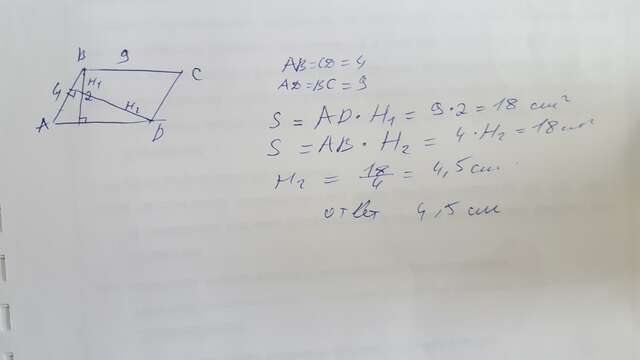 B 9 C
4 H₁ 2 H₂
A D
AB = CD = 4
AD = BC = 9
S = AD · H₁ = 9 · 2 = 18 см²
S = AB · H₂ = 4 · H₂ = 18 см²
H₂ = 18/4 = 4,5 см.
ответ 4,5 см